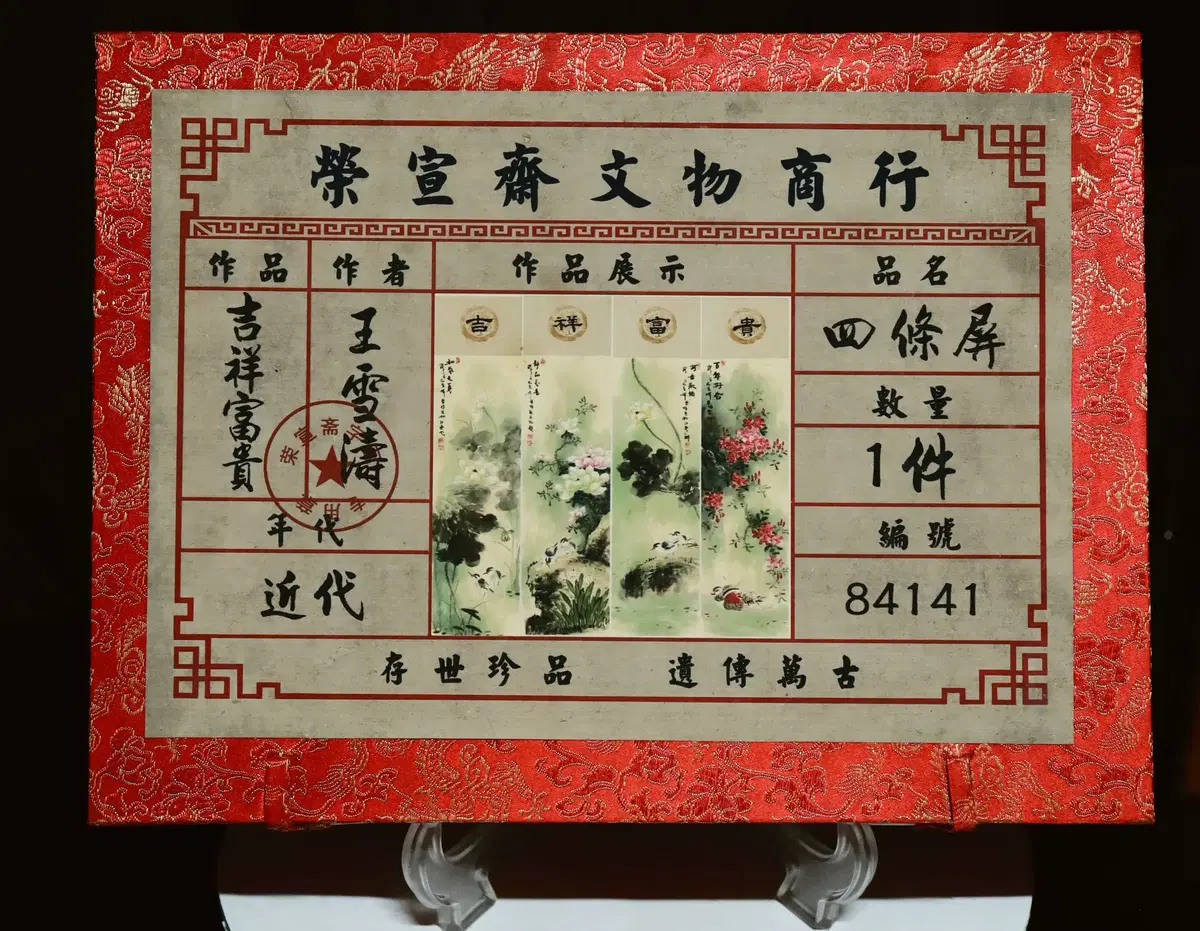 榮宣齋文物商行
作品 作者 作品展示 品名
吉祥富貴
王雪濤
吉 祥 富 貴
四條屏
數量
1件
編號
84141
年代
近代
荣宣斋
专用章
存世珍品 遺傳萬古